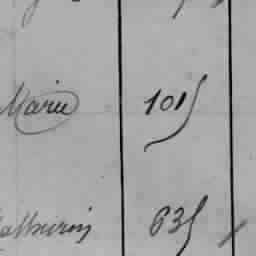 Marie 1015
Mathurin 635